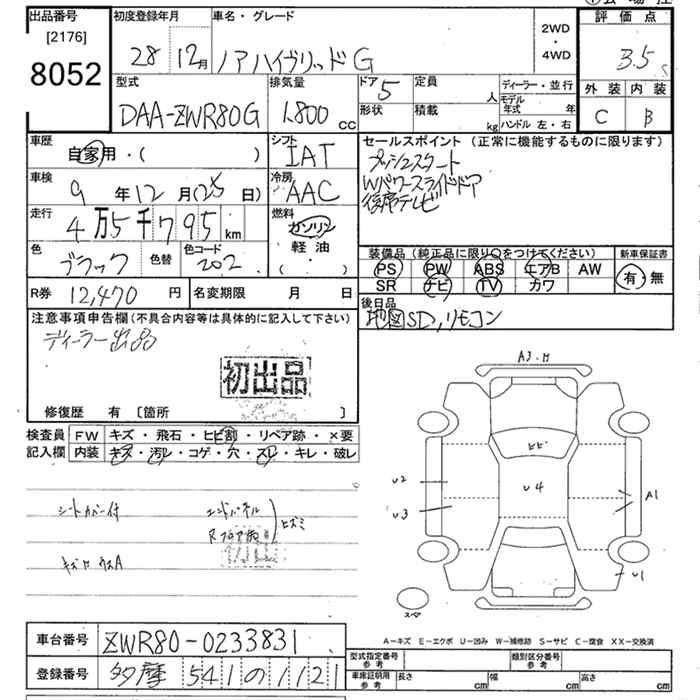 出品番号
[2176]
8052
初度登録年月
28 12月
車名・グレード
ノアハイブリッドG
2WD
・
4WD
評価点
3.5
外装 内装
C B
型式
DAA-ZWR80G
排気量
1,800 cc
ドア 5
形状
定員 人
積載 kg
ディーラー・並行
モデル年式 年
ハンドル 左・右
車歴
自家用・( )
シフト
IAT
車検
9年12月(25日)
冷房
AAC
走行
4万5千795km
燃料
ガソリン
軽油
・( )
色
ブラック
色替
色コード
202
セールスポイント (正常に機能するものに限ります)
プッシュスタート
Wパワースライドドア
後席テレビ
装備品 (純正品に限り○をつけてください)
新車保証書
PS PW ABS エアB AW
SR ナビ TV カワ
有・無
R券 12,470円
名変期限 月 日
後日品
地図SD,リモコン
注意事項申告欄 (不具合内容等は具体的に記入して下さい)
ディーラー出品
初出品
修復歴 有 〔箇所 〕
検査員記入欄
FW キズ・飛石・ヒビ割・リペア跡・×要
内装 キズ・汚レ・コゲ・穴・スレ・キレ・破レ
シートカバー付
エンドパネル
Rフロア
ヒズミ
A3.
ヒビ
U2
U3
U4
A1
U1
スペア
A−キズ E−エクボ U−凹み W−補修跡 S−サビ C−腐食 XX−交換済
車台番号 ZWR80-0233831
登録番号 多摩 541 の 1121
型式指定番号 参考
類別区分番号 参考
車庫証明用 参考
長さ cm 幅 cm 高さ cm